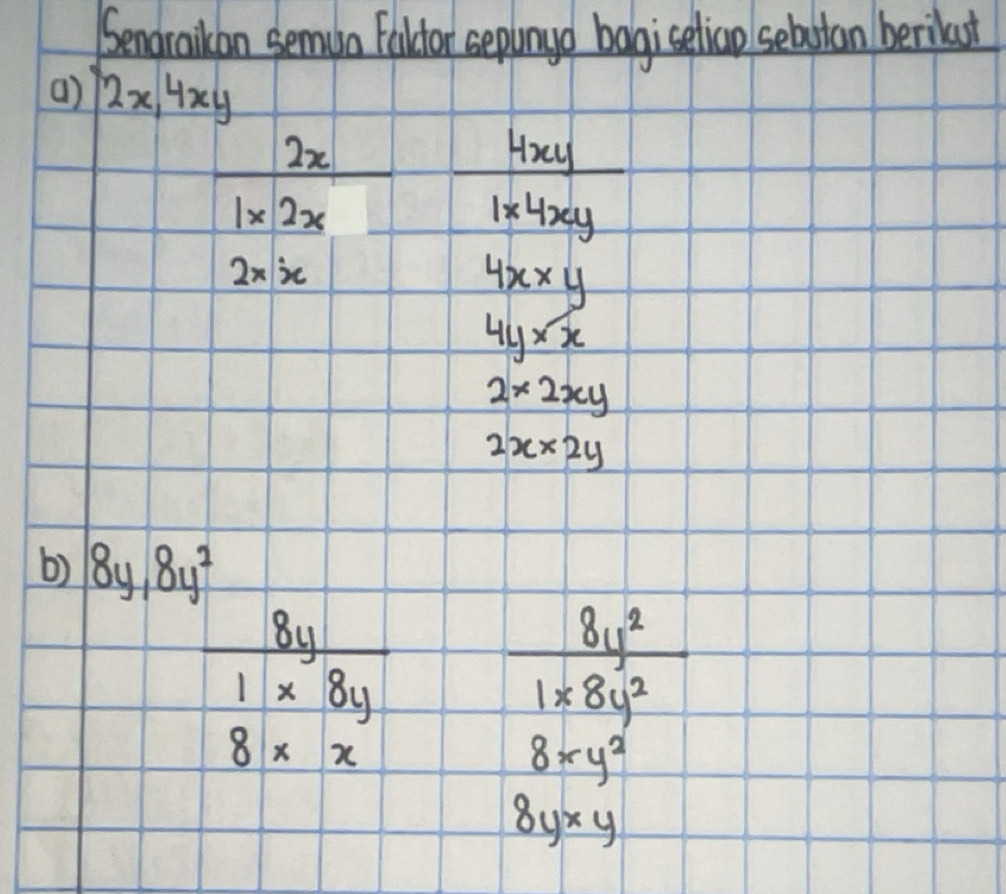 Senaraikan semua Faktor sepunya bagi setiap sebutan berikut
a) 2x, 4xy
2x 4xy
1 × 2x 1 × 4xy
2 × x 4x × y
4y × x
2 × 2xy
2x × 2y
b) 8y, 8y²
8y 8y²
1 × 8y 1 × 8y²
8 × x 8 × y²
8y × y